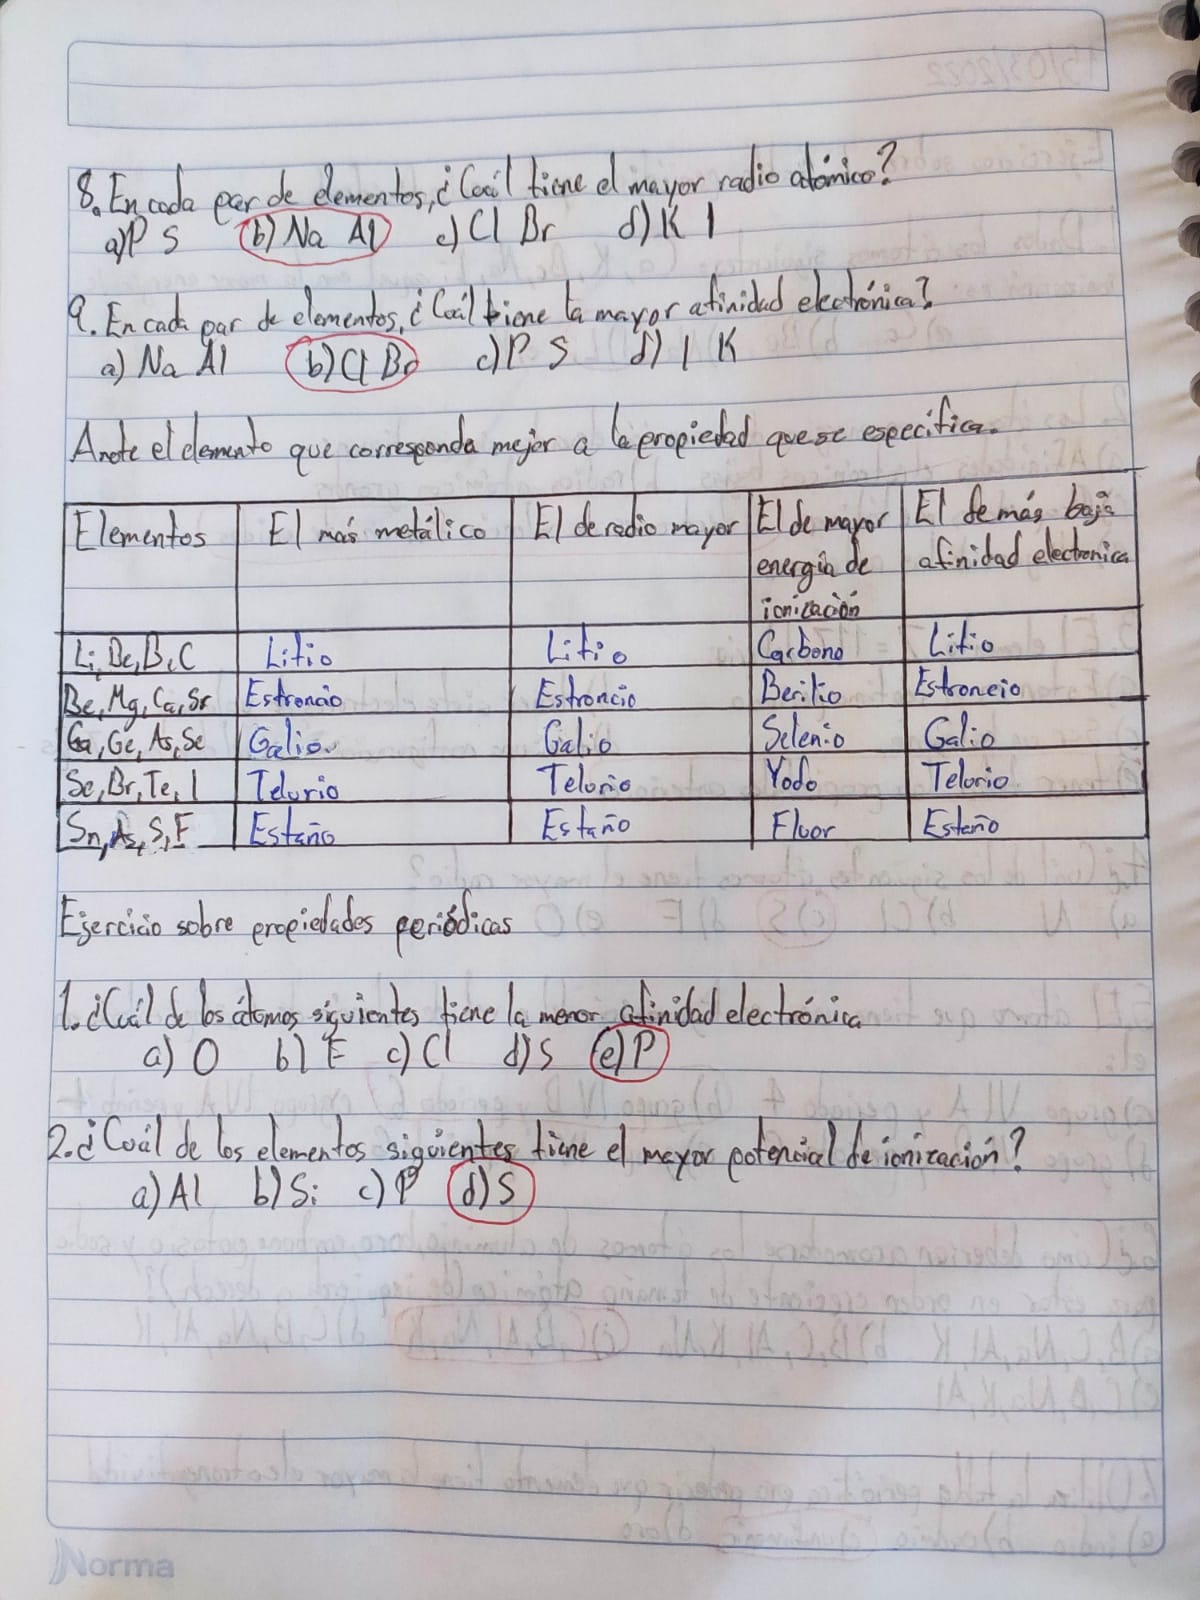 8. En cada par de elementos, ¿Cuál tiene el mayor radio atómico?
a) P S b) Na Al c) Cl Br d) K I
9. En cada par de elementos, ¿Cuál tiene la mayor afinidad electrónica?
a) Na Al b) Cl Br c) P S d) I K
Anote el elemento que corresponda mejor a la propiedad que se especifica.
Elementos El más metálico El de radio mayor El de mayor energía de ionización El de más baja afinidad electronica
Li, Be, B, C Litio Litio Carbono Litio
Be, Mg, Ca, Sr Estroncio Estroncio Berilio Estroncio
Ga, Ge, As, Se Galio Galio Selenio Galio
Se, Br, Te, I Telurio Telurio Yodo Telurio
Sn, As, S, F Estaño Estaño Fluor Estaño
Ejercicio sobre propiedades periódicas
1. ¿Cuál de los átomos siguientes tiene la menor afinidad electrónica
a) O b) F c) Cl d) S e) P
2. ¿Cuál de los elementos siguientes tiene el mayor potencial de ionización?
a) Al b) Si c) P d) S
Norma